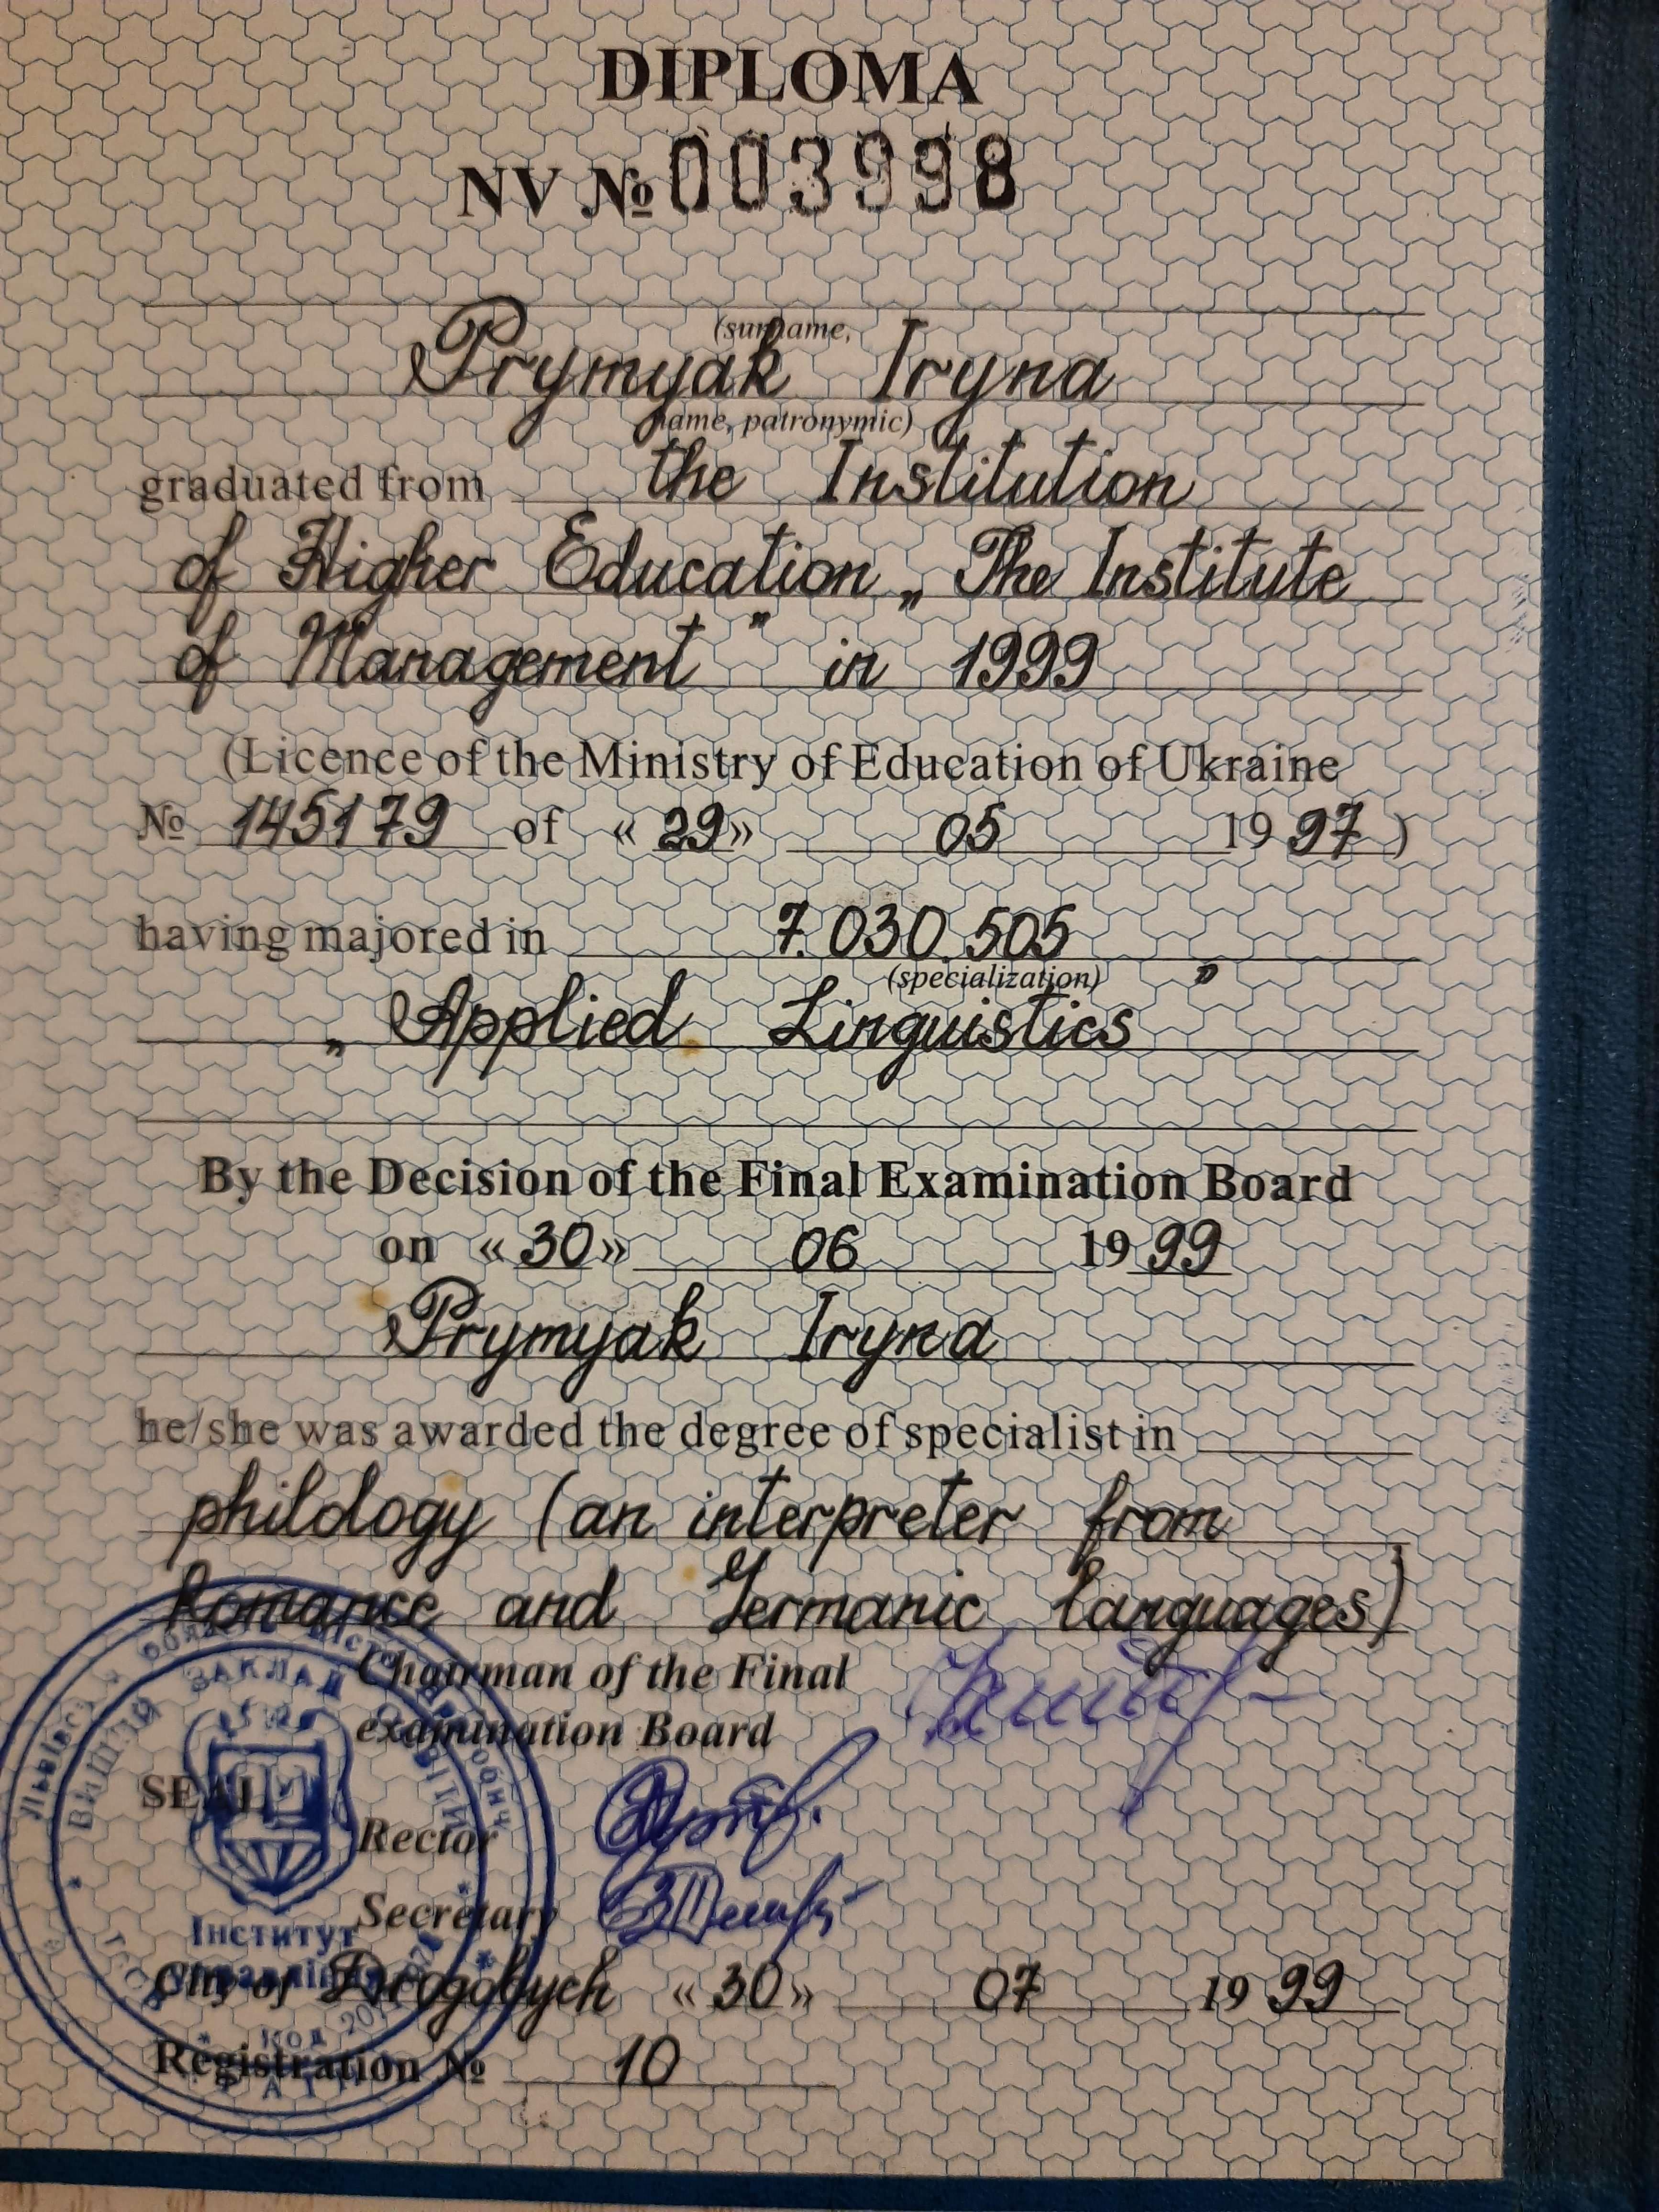 DIPLOMA
NV № 003998
(surname,
Prymyak Iryna
name, patronymic)
graduated from the Institution
of Higher Education „The Institute
of Management" in 1999
(Licence of the Ministry of Education of Ukraine
№ 145179 of «29» 05 1997)
having majored in 7.030.505
(specialization)
„Applied Linguistics"
By the Decision of the Final Examination Board
on «30» 06 1999
Prymyak Iryna
he/she was awarded the degree of specialist in
philology (an interpreter from
Romance and Germanic languages)
Chairman of the Final
examination Board
SEAL
Rector
Secretary
City of Drogobych «30» 07 1999
Registration № 10
ВИЩИЙ ЗАКЛАД ОСВІТИ
Інститут
Управління
Код